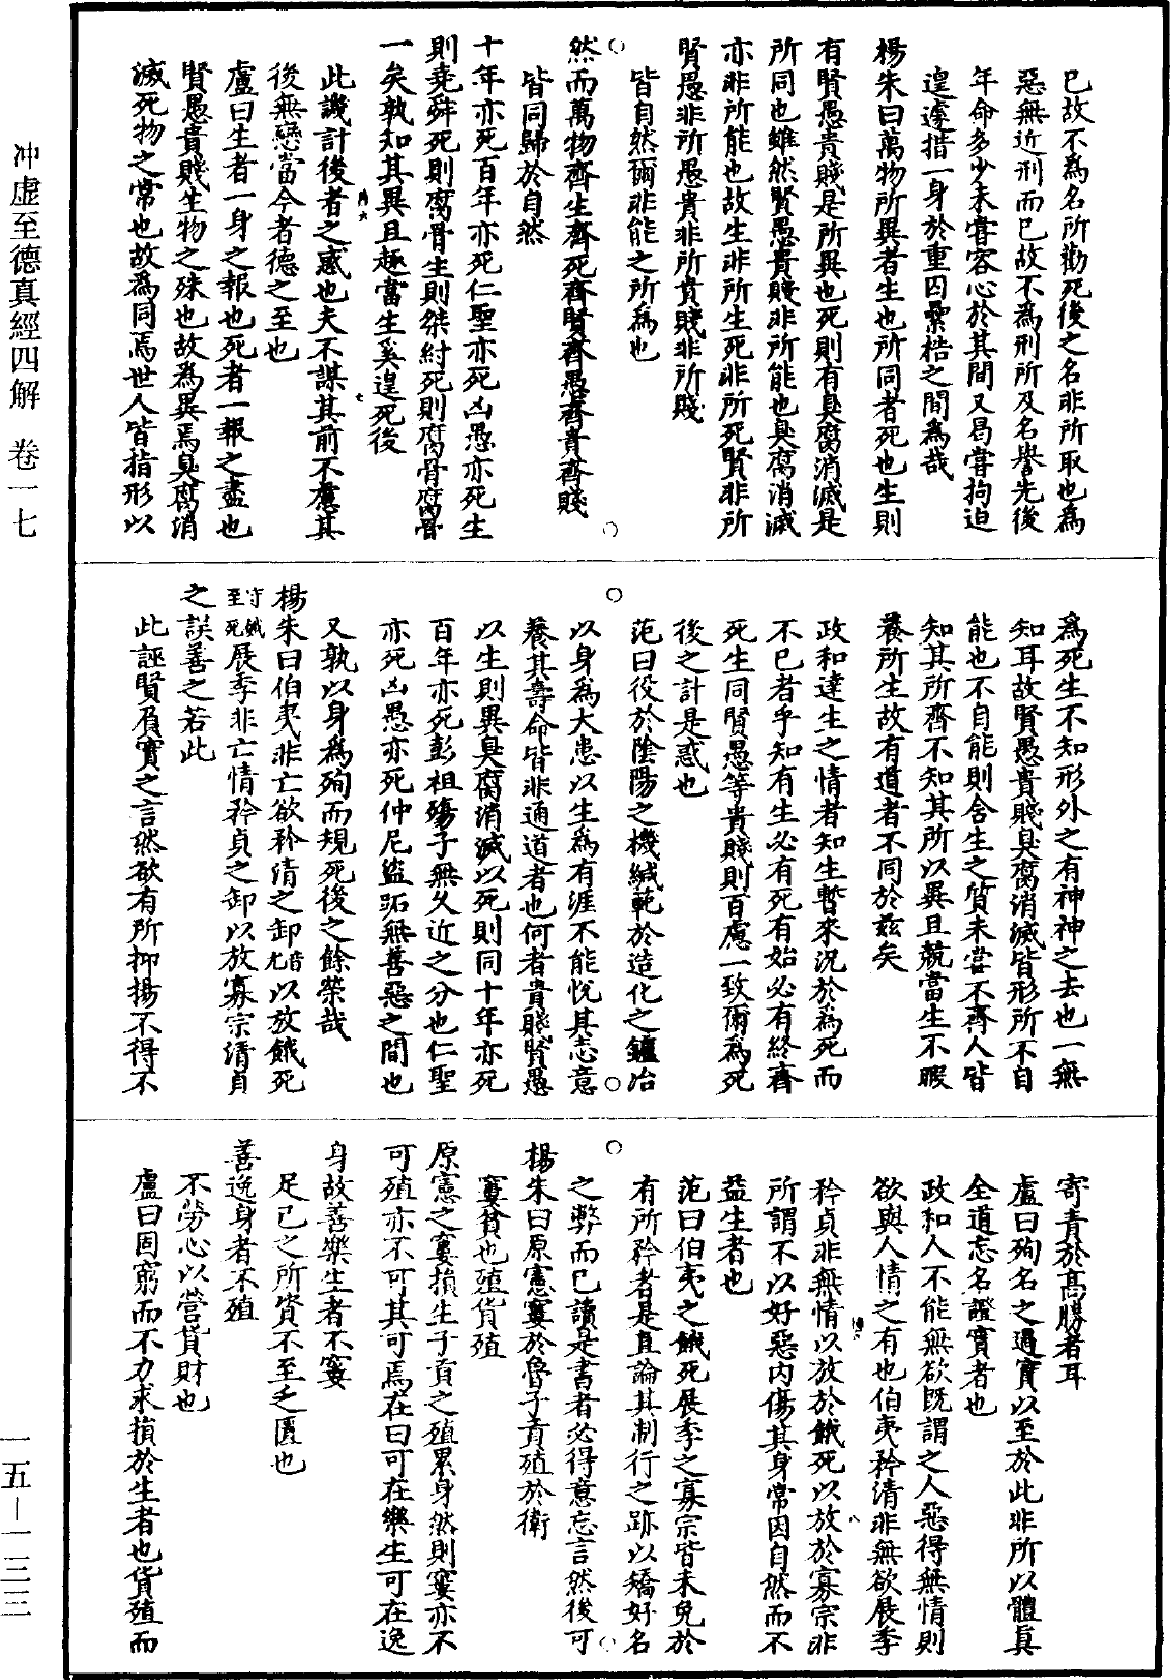 已故不為名所勸死後之名非所取也為
惡無近刑而已故不為刑所及名譽先後
年命多少未嘗容心於其間又曷嘗拘迫
遑遽措一身於重囚纍梏之間為哉
楊朱曰萬物所異者生也所同者死也生則
有賢愚貴賤是所異也死則有臭腐消滅是
所同也雖然賢愚貴賤非所能也臭腐消滅
亦非所能也故生非所生死非所死賢非所
賢愚非所愚貴非所貴賤非所賤
皆自然爾非能之所為也
然而萬物齊生齊死齊賢齊愚齊貴齊賤
皆同歸於自然
十年亦死百年亦死仁聖亦死凶愚亦死生
則堯舜死則腐骨生則桀紂死則腐骨腐骨
一矣孰知其異且趣當生奚遑死後
此譏計後者之惑也夫不謀其前不慮其
後無戀當今者德之至也
盧曰生者一身之報也死者一報之盡也
賢愚貴賤生物之殊也故為異焉臭腐消
滅死物之常也故為同焉世人皆指形以
為死生不知形外之有神神之去也一無
知耳故賢愚貴賤臭腐消滅皆形所不自
能也不自能則含生之質未嘗不齊人皆
知其所齊不知其所以異且競當生不暇
養所生故有道者不同於茲矣
政和達生之情者知生暫來況於為死而
不已者乎知有生必有死有始必有終齊
死生同賢愚等貴賤則百慮一致爾為死
後之計是惑也
范曰役於陰陽之機緘範於造化之鑪冶
以身為大患以生為有涯不能悅其志意
養其壽命皆非通道者也何者貴賤賢愚
以生則異臭腐消滅以死則同十年亦死
百年亦死彭祖殤子無久近之分也仁聖
亦死凶愚亦死仲尼盜跖無善惡之間也
又孰以身為殉而規死後之餘榮哉
楊朱曰伯夷非亡欲矜清之卸音尤以放餓死
守餓至死展季非亡情矜貞之卸以放寡宗清貞
之誤善之若此
此誣賢負實之言然欲有所抑揚不得不
寄責於高勝者耳
盧曰殉名之過實以至於此非所以體真
全道忘名證實者也
政和人不能無欲既謂之人惡得無情則
欲與人情之有也伯夷矜清非無欲展季
矜貞非無情以放於餓死以放於寡宗非
所謂不以好惡內傷其身常因自然而不
益生者也
范曰伯夷之餓死展季之寡宗皆未免於
有所矜者是直論其制行之跡以矯好名
之弊而已讀是書者必得意忘言然後可
楊朱曰原憲窶於魯子貢殖於衛
窶貧也殖貨殖
原憲之窶損生子貢之殖累身然則窶亦不
可殖亦不可其可焉在曰可在樂生可在逸
身故善樂生者不窶
足已之所資不至乏匱也
善逸身者不殖
不勞心以營貨財也
盧曰固窮而不力求損於生者也貨殖而
冲虛至德真經四解 卷一七
一五—一三三